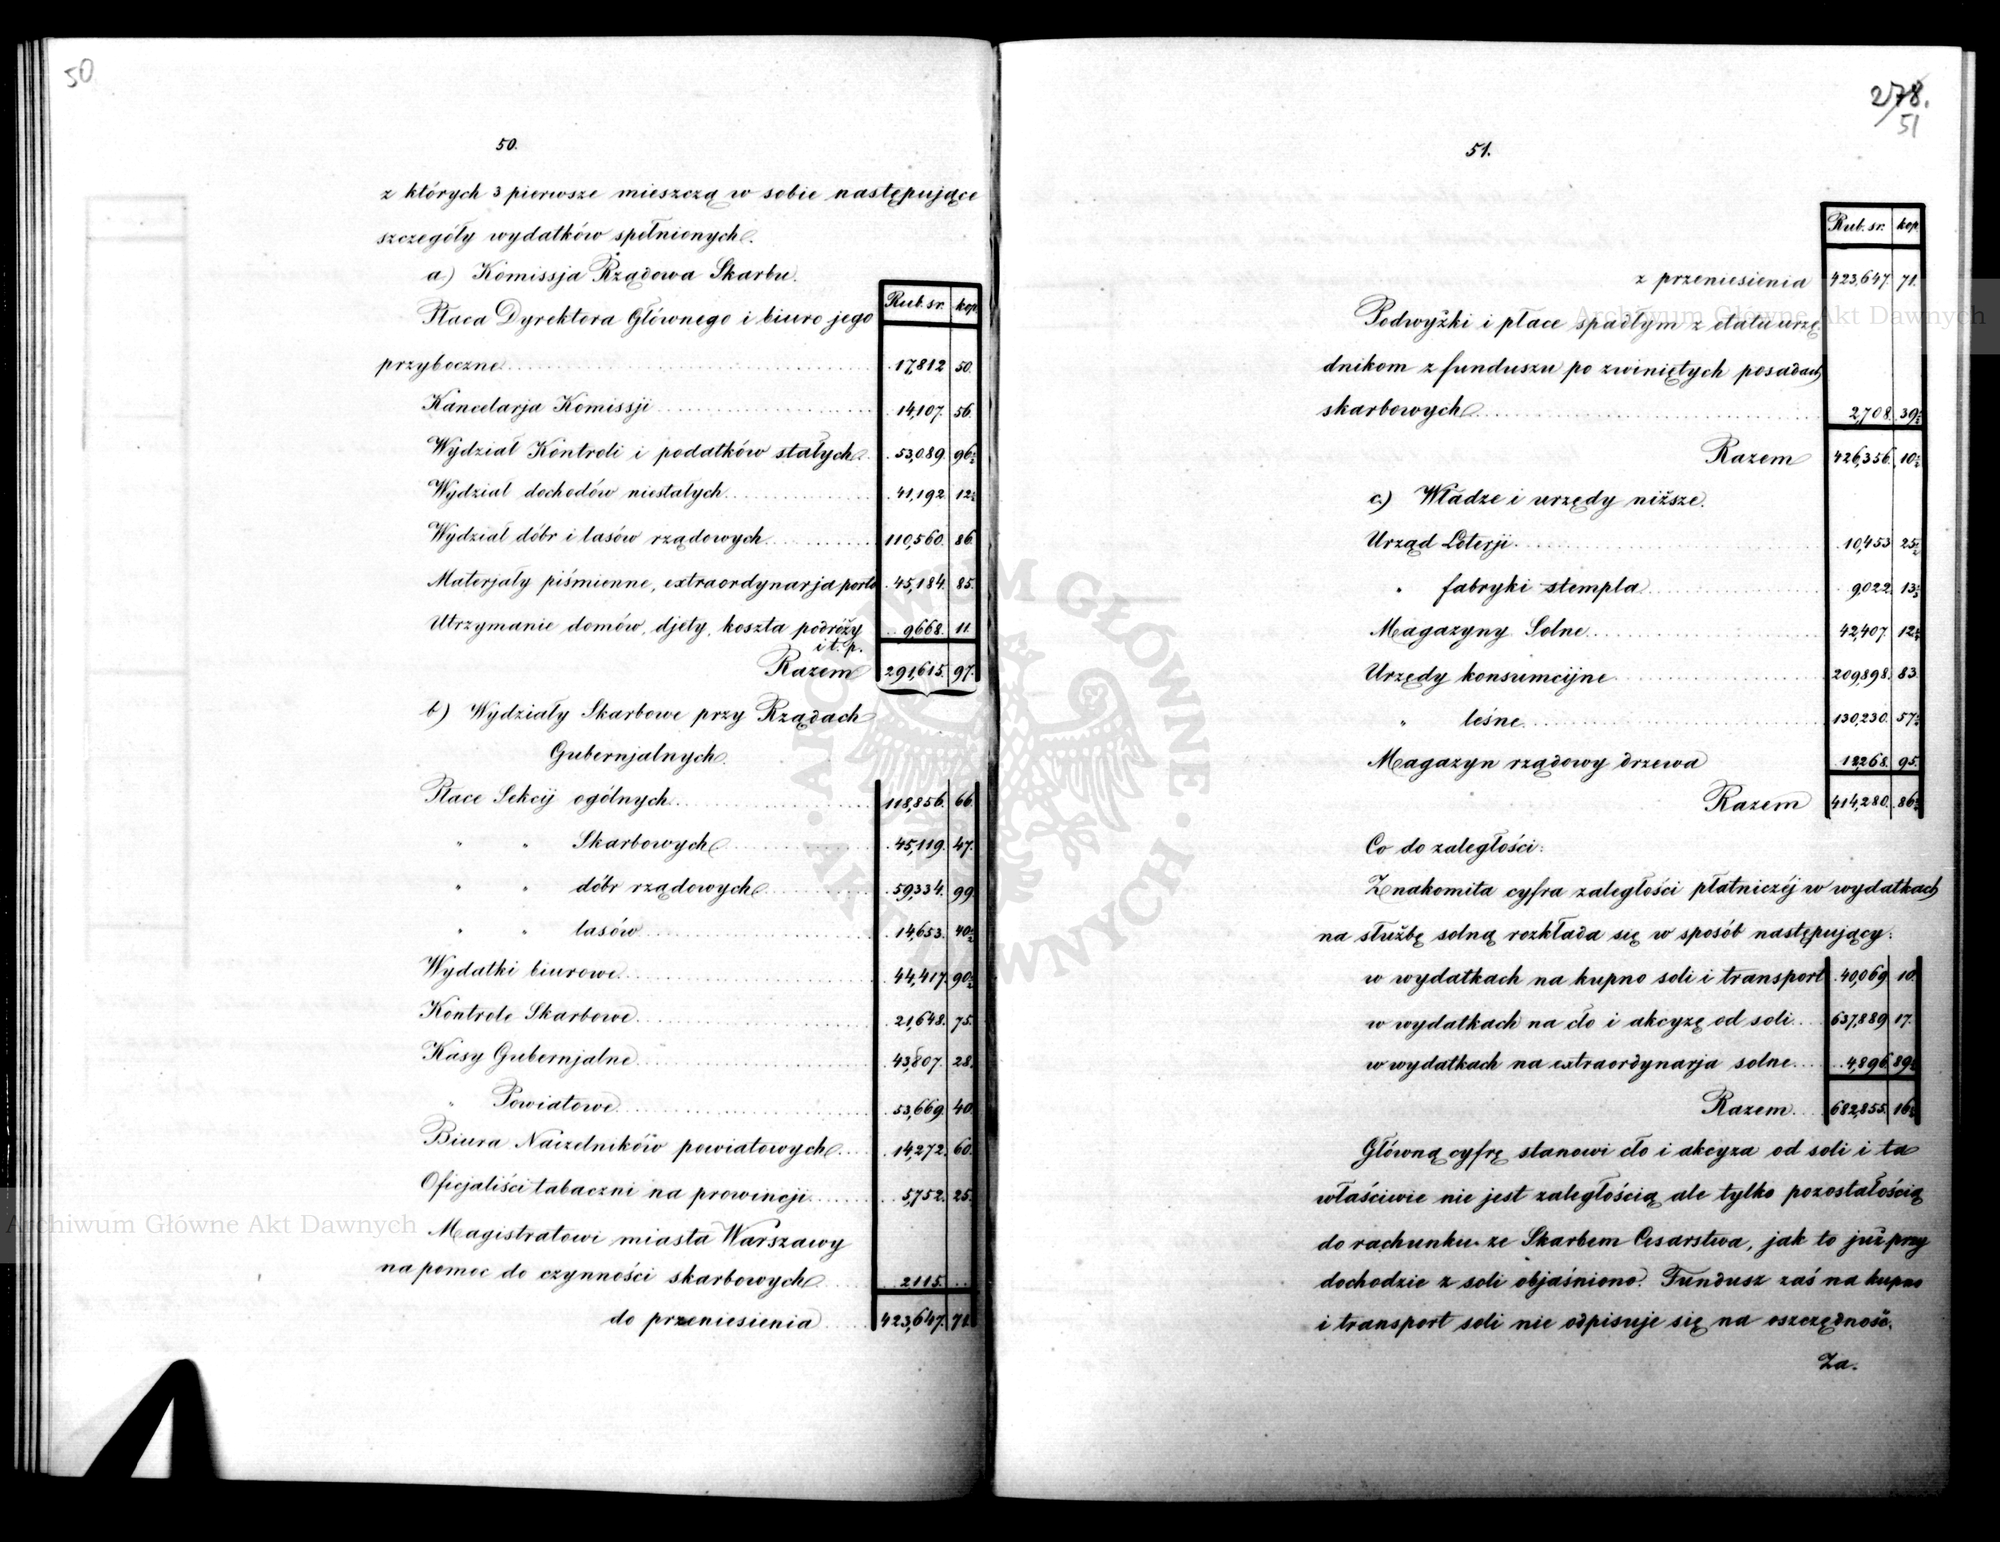 50
50.
z których 3 pierwsze mieszczą w sobie następujące
szczegóły wydatków spełnionych.
a) Kommissja Rządowa Skarbu.
Rub. sr. kop
Płaca Dyrektora Głównego i biuro jego
przyboczne 17,812 50.
Kancelarja Komissji 14,107. 56.
Wydział Kontroli i podatków stałych 53,089. 96½
Wydział dochodów niestałych 41,192. 12½
Wydział dóbr i lasów rządowych 110,560. 86.
Materjały piśmienne, extraordynarja porto 45,184. 85.
Utrzymanie domów, djety, koszta podróży 9,668. 11.
i t. p.
Razem 291,615. 97.
b) Wydziały Skarbowe przy Rządach
Gubernjalnych.
Płace Sekcij ogólnych 118,856. 66.
" " Skarbowych 45,119. 47.
" " dóbr rządowych 59,334. 99.
" " lasów 14,653. 40½
Wydatki biurowe 44,417. 90½
Kontrole Skarbowe 21,648. 75.
Kasy Gubernjalne 43,807. 28.
" Powiatowe 53,669. 40.
Biura Naczelników powiatowych 14,272. 60.
Oficjaliści tabaczni na prowincji 5,752. 25.
Magistratowi miasta Warszawy
na pomoc do czynności skarbowych 2115.
do przeniesienia 423,647. 71.
278.
51
51.
Rub. sr. kop
z przeniesienia 423,647. 71.
Podwyżki i płace spadłym z etatu urzę
dnikom z funduszu po zwiniętych posadach
skarbowych 2,708. 39½
Razem 426,356. 10½
c.) Władze i urzędy niższe.
Urząd Loterji 10,453 25½
" fabryki stempla 9,022. 13½
Magazyny Solne 42,407. 12½
Urzędy konsumcijne 209,898. 83.
" leśne 130,230. 57½
Magazyn rządowy drzewa 12,268. 95.
Razem 414,280. 86½
Co do zaległości:
Znakomita cyfra zaległości płatniczéj w wydatkach
na służbę solną rozkłada się w sposób następujący:
w wydatkach na kupno soli i transport 40,069. 10.
w wydatkach na cło i akcyzę od soli 637,889 17.
w wydatkach na extraordynarja solne 4,896. 89½
Razem 682,855. 16½
Główną cyfrę stanowi cło i akcyza od soli i ta
właściwie nie jest zaległością ale tylko pozostałością
do rachunku ze Skarbem Cesarstwa, jak to już przy
dochodzie z soli objaśniono. Fundusz zaś na kupno
i transport soli nie odpisuje się na oszczędność.
Za.
Archiwum Główne Akt Dawnych
Archiwum Główne Akt Dawnych
ARCHIWUM GŁÓWNE · AKT DAWNYCH ·